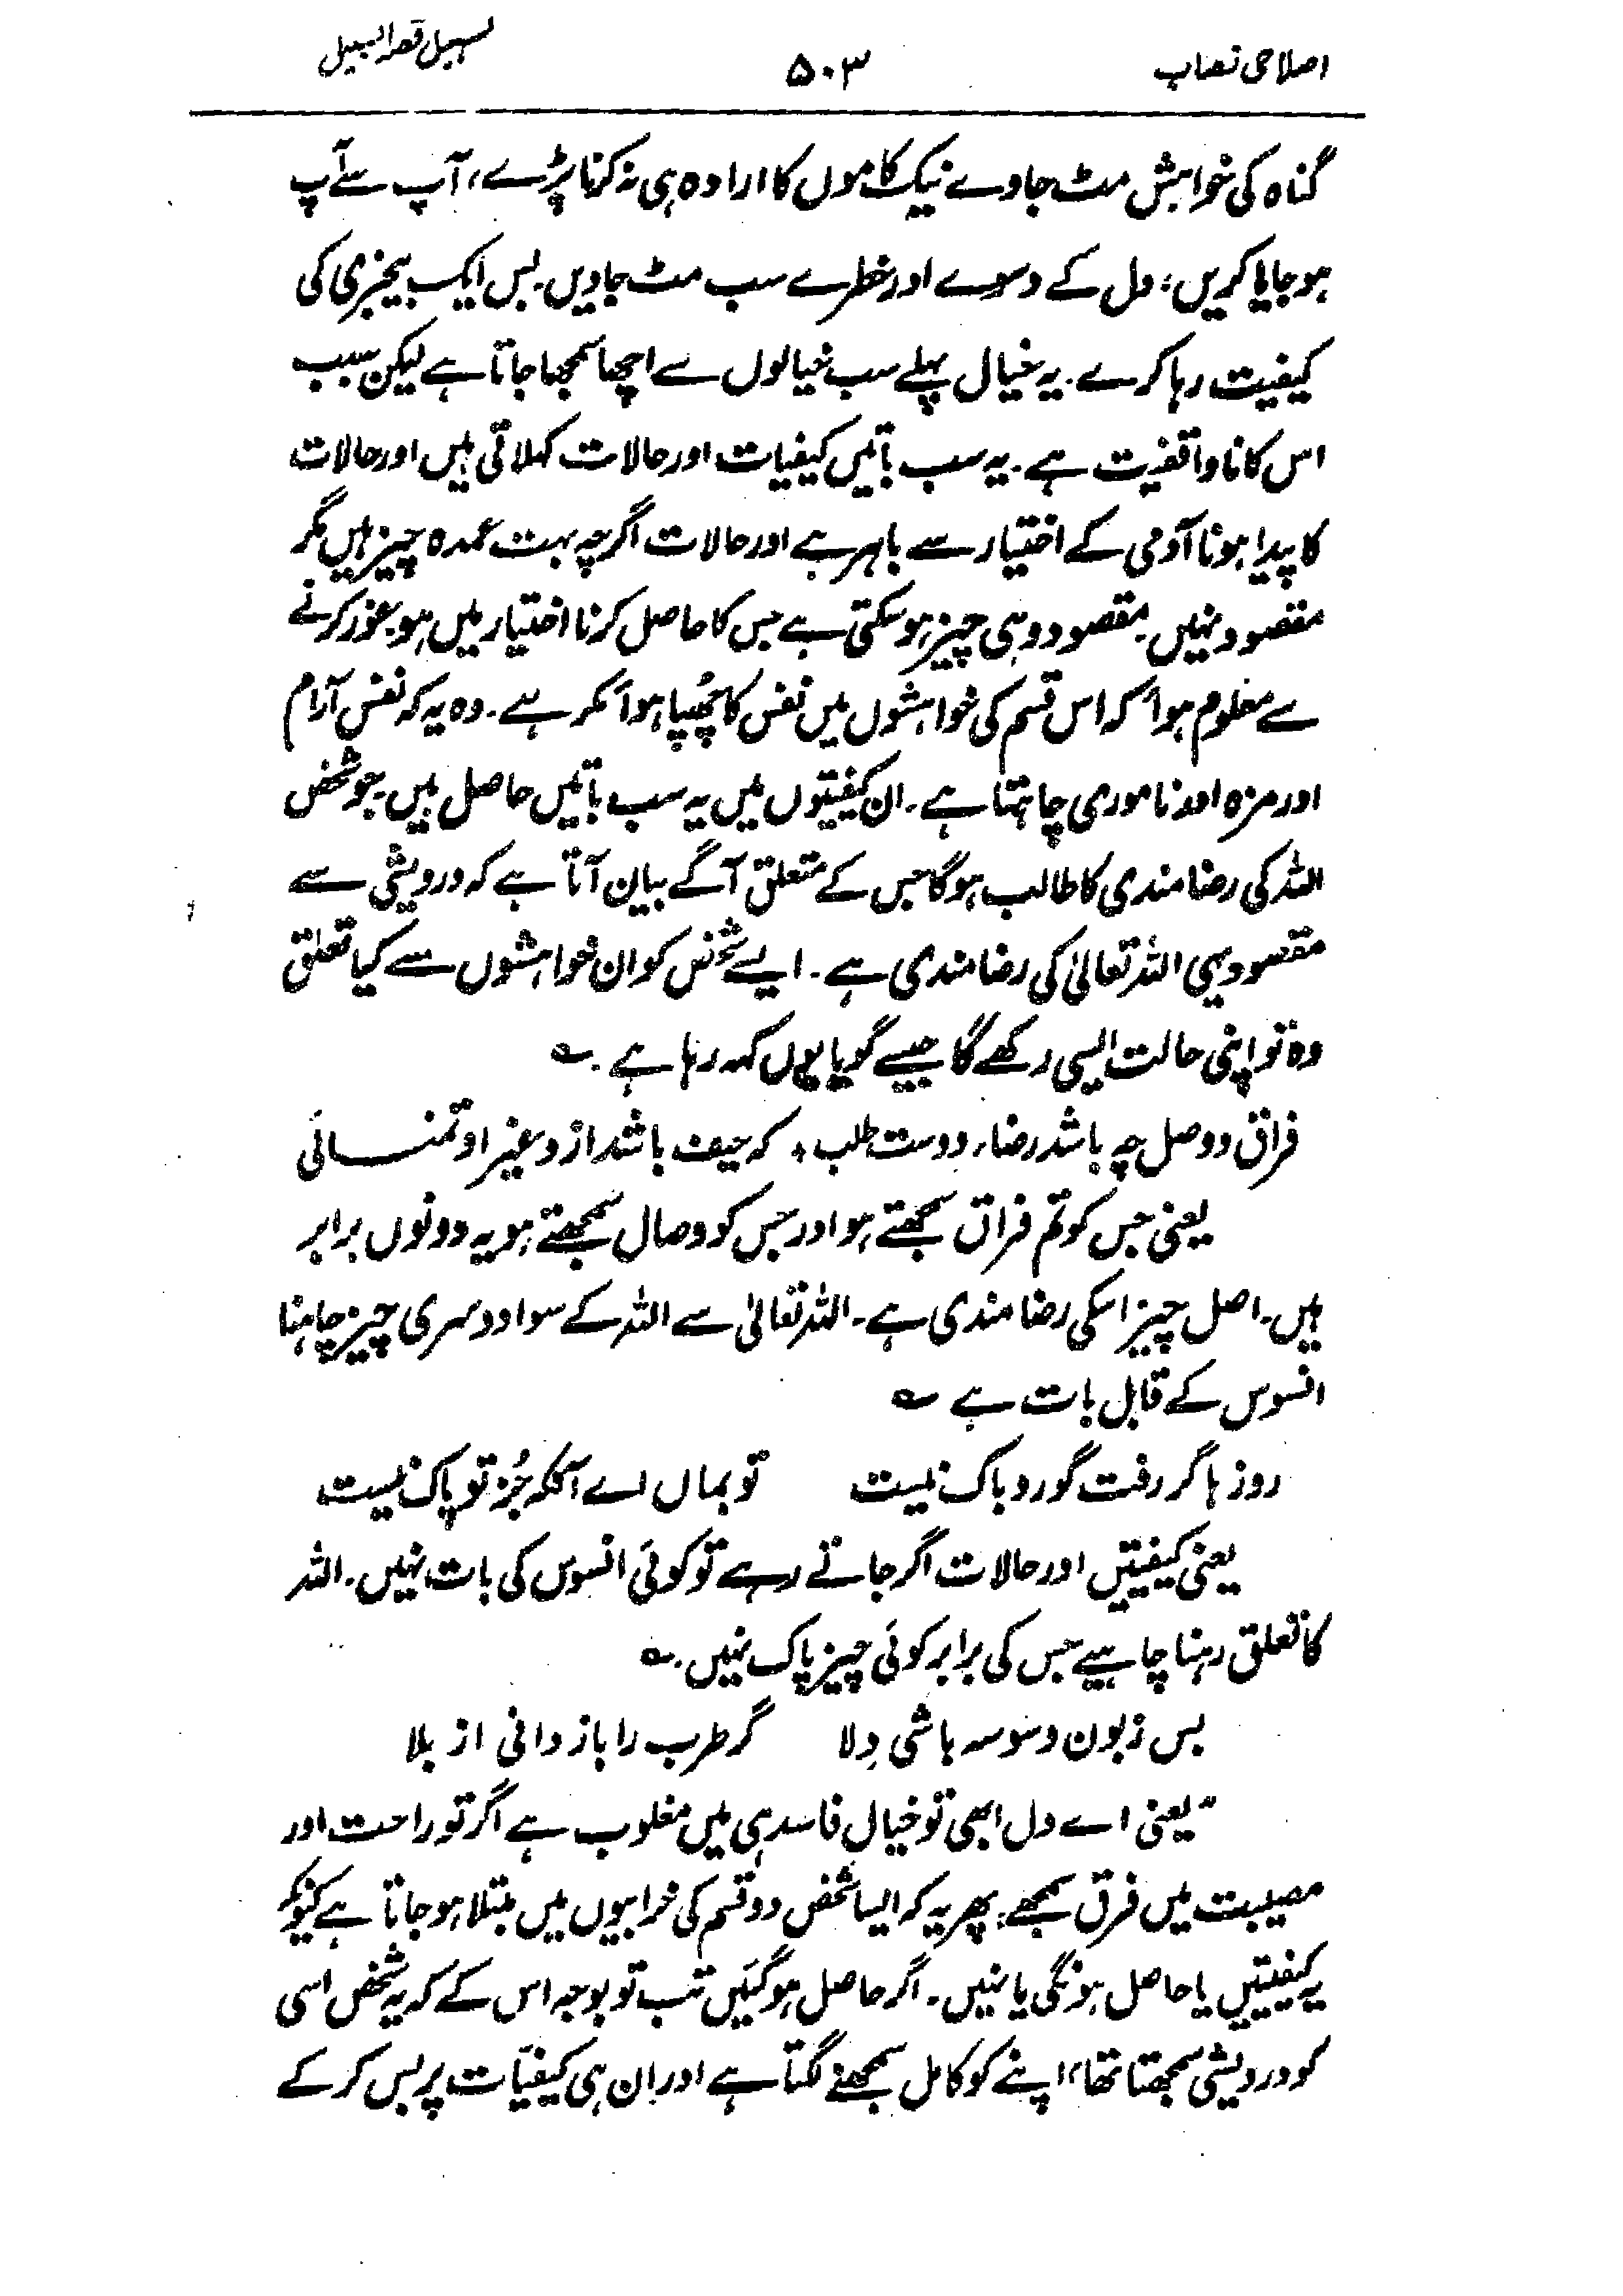 اصلاحی نصاب ۵۰۳ تسہیل قصد السبیل
گناہ کی خواہش مٹ جاوے نیک کاموں کا ارادہ ہی نہ کرنا پڑے، آپ سے آپ
ہو جایا کریں، دل کے وسوسے اور خطرے سب مٹ جاویں۔ بس ایک بیخبری کی
کیفیت رہا کرے۔ یہ خیال پہلے سب خیالوں سے اچھا سمجھا جاتا ہے لیکن سبب
اس کا ناواقفیت ہے۔ یہ سب باتیں کیفیات اور حالات کہلاتی ہیں اور حالات
کا پیدا ہونا آدمی کے اختیار سے باہر ہے اور حالات اگرچہ بہت عمدہ چیز ہیں مگر
مقصود نہیں۔ مقصود وہی چیز ہو سکتی ہے جس کا حاصل کرنا اختیار میں ہو۔ غور کرنے
سے معلوم ہوا کہ اس قسم کی خواہشوں میں نفس کا چُھپا ہوا مکر ہے۔ وہ یہ کہ نفس آرام
اور مزہ اور ناموری چاہتا ہے۔ ان کیفیتوں میں یہ سب باتیں حاصل ہیں۔ جو شخص
اللہ کی رضامندی کا طالب ہوگا جس کے متعلق آگے بیان آتا ہے کہ درویشی سے
مقصود یہی اللہ تعالیٰ کی رضامندی ہے۔ ایسے شخص کو ان خواہشوں سے کیا تعلق
وہ تو اپنی حالت ایسی رکھے گا جیسے گویا یوں کہہ رہا ہے۔ ؎
فراق و وصل چہ باشد رضاء دوست طلب، کہ حیف باشد از و غیر او تمنائی
یعنی جس کو تم فراق سمجھتے ہو اور جس کو وصال سمجھتے ہو یہ دونوں برابر
ہیں۔ اصل چیز اسکی رضامندی ہے۔ اللہ تعالیٰ سے اللہ کے سوا دوسری چیز چاہنا
افسوس کے قابل بات ہے ؎
روزہا گر رفت گو رو باک نیست تو بماں اے آنکہ جُز تو پاک نیست
یعنی کیفیتیں اور حالات اگر جاتے رہے تو کوئی افسوس کی بات نہیں۔ اللہ
کا تعلق رہنا چاہیے جس کی برابر کوئی چیز پاک نہیں۔ ؎
بس زبون وسوسہ باشی دِلا گر طرب را باز دانی از بلا
"یعنی اے دل ابھی تو خیال فاسد ہی میں مغلوب ہے اگر تو راحت اور
مصیبت میں فرق سمجھے۔ پھر یہ کہ ایسا شخص دو قسم کی خرابیوں میں مبتلا ہو جاتا ہے کیونکہ
یہ کیفیتیں یا حاصل ہونگی یا نہیں۔ اگر حاصل ہو گئیں تب تو بوجہ اس کے کہ یہ شخص اسی
کو درویشی سمجھتا تھا، اپنے کو کامل سمجھنے لگتا ہے اور ان ہی کیفیّات پر بس کر کے